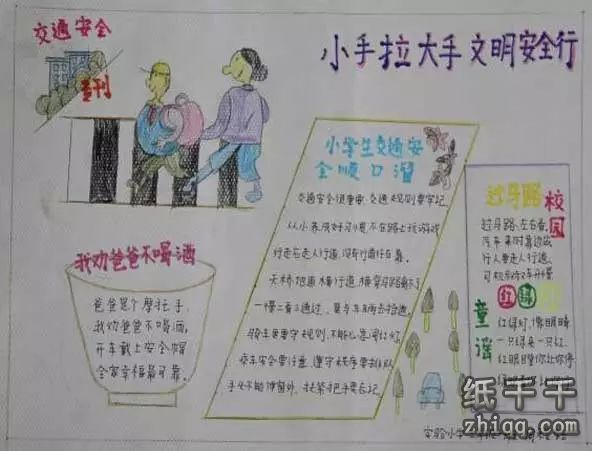 交通安全
专刊
小手拉大手文明安全行
小学生交通安
全顺口溜
交通安全很重要,交通规则要牢记,
从小养成好习惯,不在路上玩游戏
行走应走人行道,没有行道往右靠
天桥地道横行道,横穿马路离不了
一慢二看三通过,莫与车辆去抢道
骑车更要守规则,不能心急闯红灯
乘车安全要注意,遵守秩序要排队
手头不能伸窗外,扶紧把手莫忘记
我劝爸爸不喝酒
爸爸是个摩托手,
我劝爸爸不喝酒,
开车戴上安全帽
全家幸福最可靠。
过马路
校园
童谣
过马路,左右看,
红绿灯
红绿灯,像眼睛
一只绿来一只红,
实验小学
纸千千
zhiqq.com